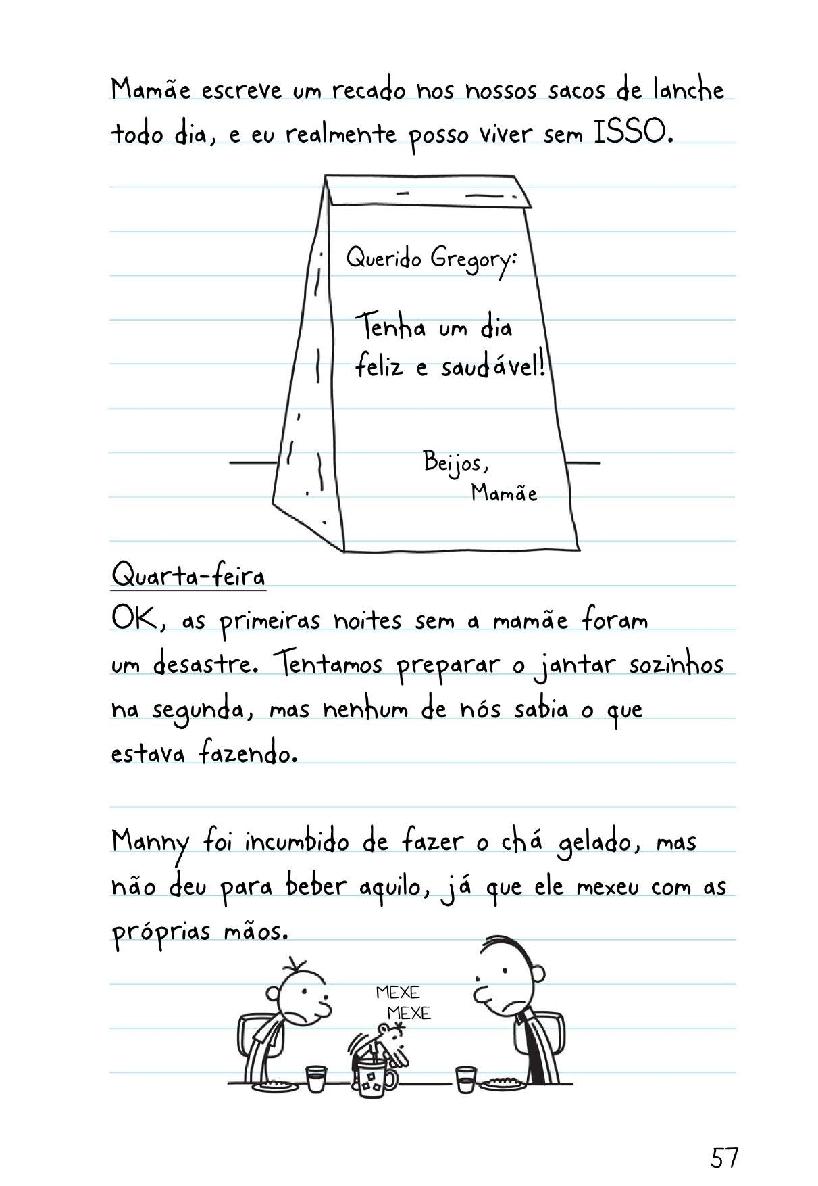 Mamãe escreve um recado nos nossos sacos de lanche
todo dia, e eu realmente posso viver sem ISSO.
Querido Gregory:
Tenha um dia
feliz e saudável!
Beijos,
Mamãe
Quarta-feira
OK, as primeiras noites sem a mamãe foram
um desastre. Tentamos preparar o jantar sozinhos
na segunda, mas nenhum de nós sabia o que
estava fazendo.
Manny foi incumbido de fazer o chá gelado, mas
não deu para beber aquilo, já que ele mexeu com as
próprias mãos.
MEXE
MEXE
57